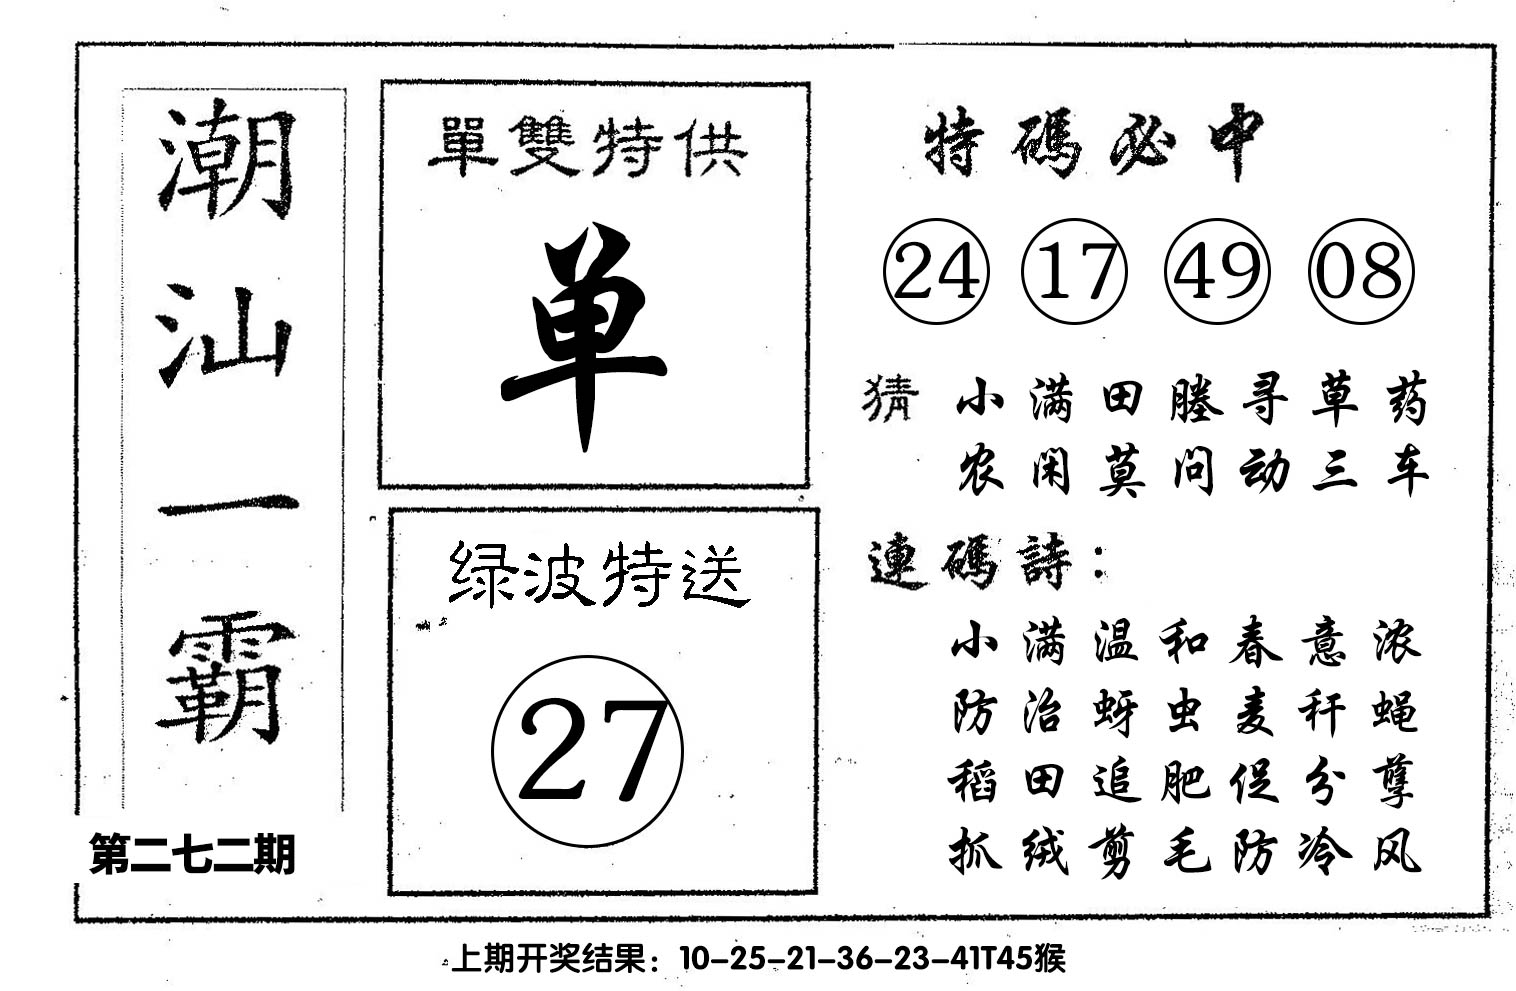 潮汕一霸
第二七二期
單雙特供
单
绿波特送
27
特碼必中
24 17 49 08
猜 小满田塍寻草药
农闲莫问动三车
連碼詩：
小满温和春意浓
防治蚜虫麦秆蝇
稻田追肥促分孽
抓绒剪毛防冷风
上期开奖结果：10-25-21-36-23-41T45猴